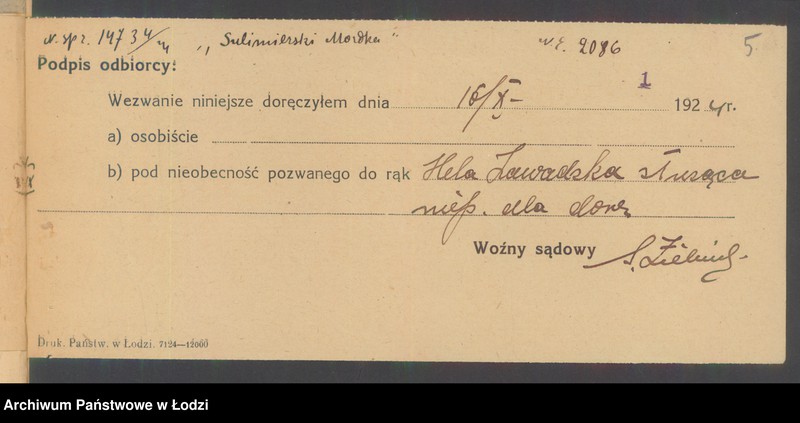 N. spr. 1473 4/24 „Sulimierski Mordka” N E. 2086 5
Podpis odbiorcy:
1
Wezwanie niniejsze doręczyłem dnia 16/X- 1924 r.
a) osobiście
b) pod nieobecność pozwanego do rąk Hela Zawadzka służąca
dla
Woźny sądowy S. Zieliński
Druk. Państw. w Łodzi. 7124—12000
Archiwum Państwowe w Łodzi